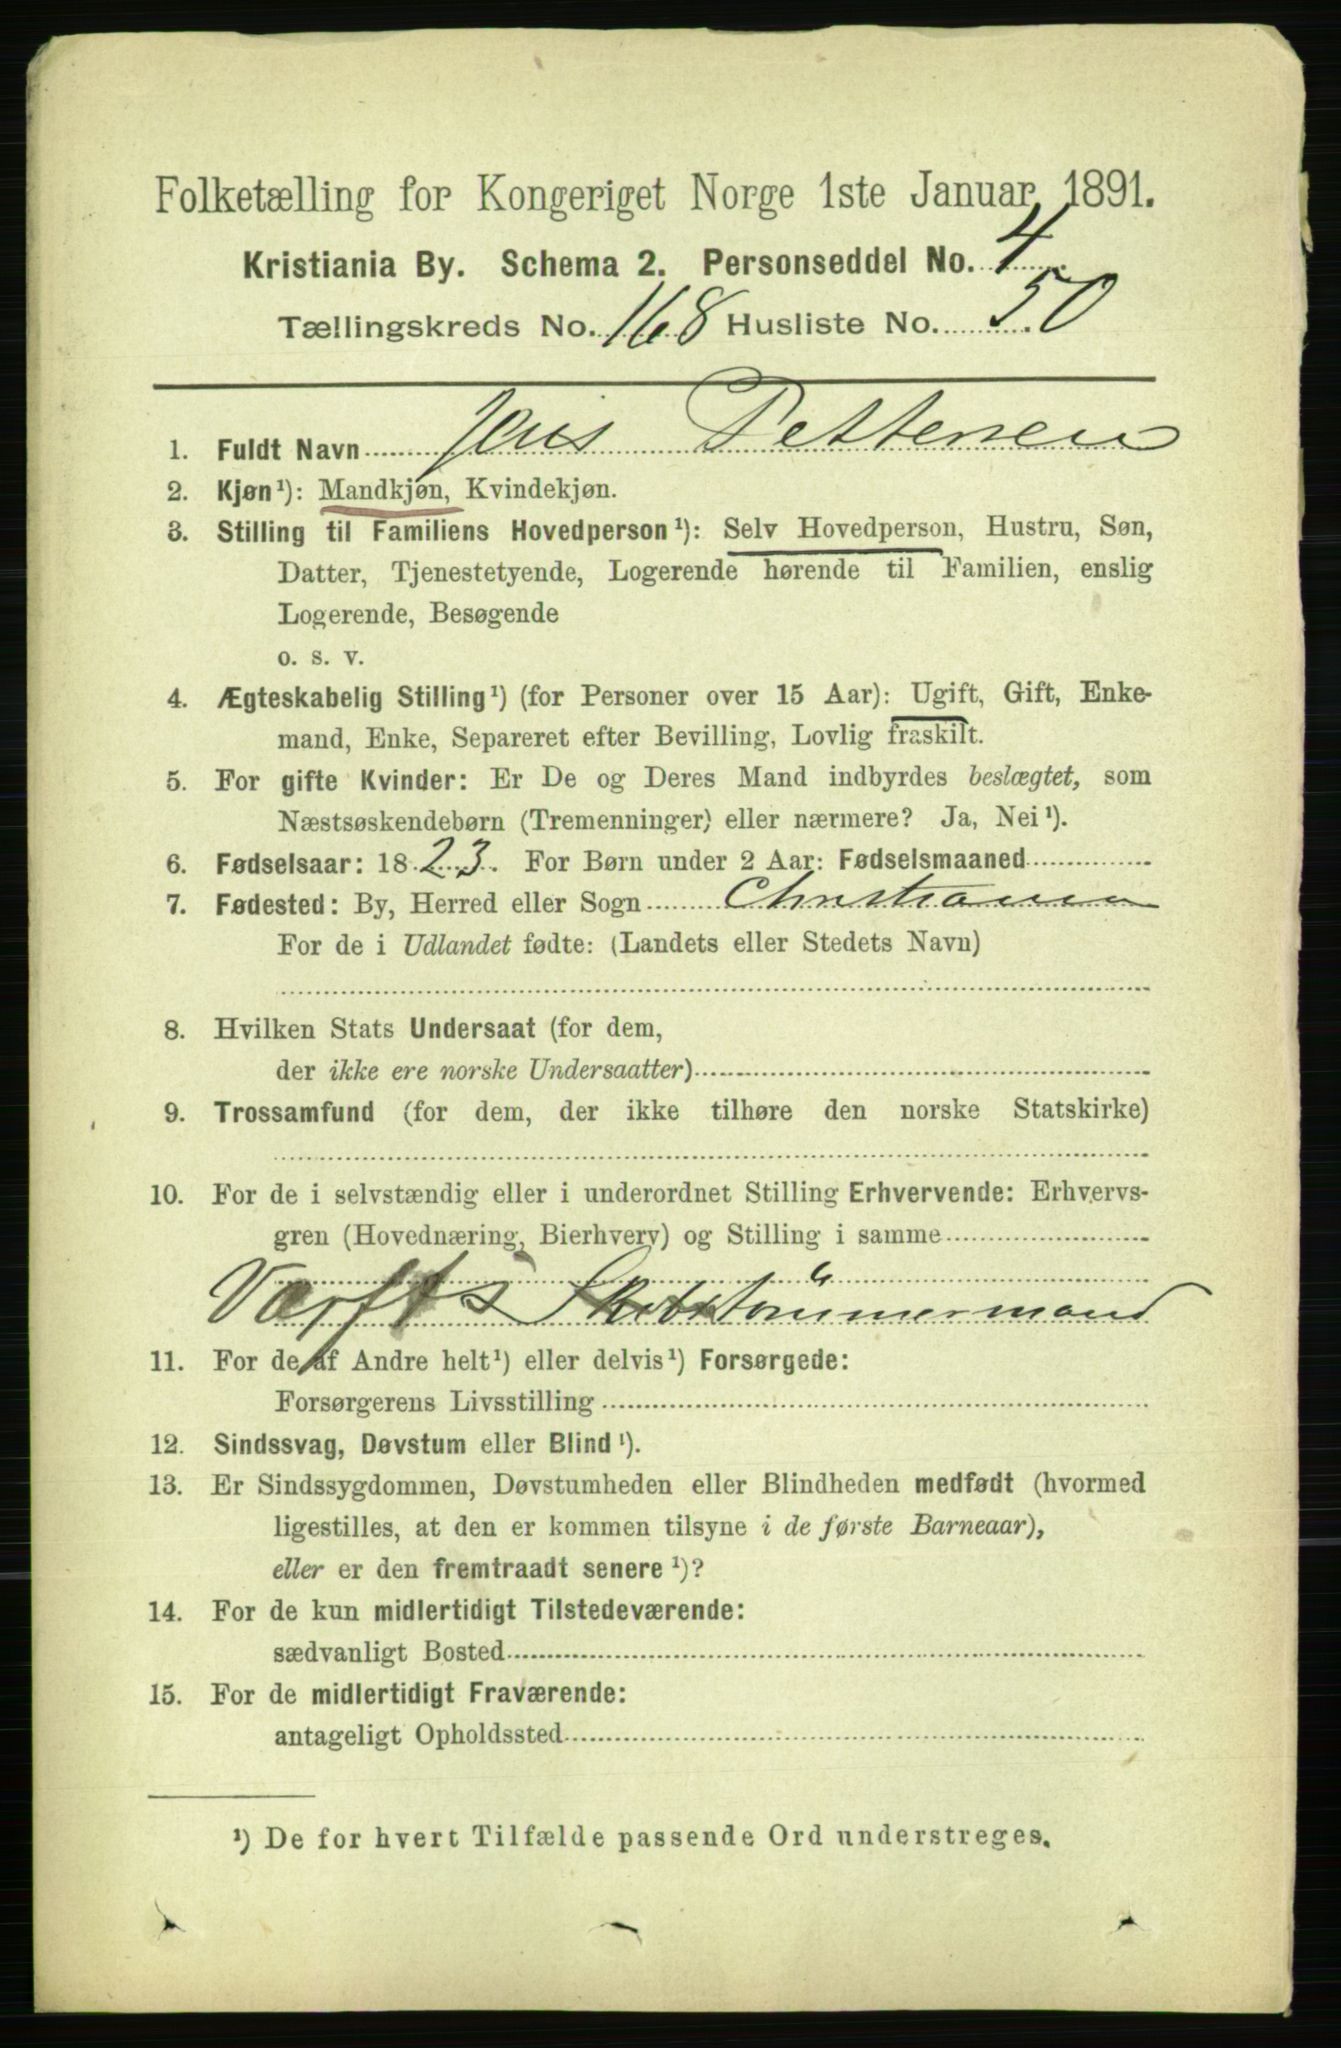 Folketælling for Kongeriget Norge 1ste Januar 1891.
Kristiania By. Schema 2. Personseddel No. 4
Tællingskreds No. 168 Husliste No. 50
1. Fuldt Navn Jens Pettersen
2. Kjøn¹): Mandkjøn, Kvindekjøn.
3. Stilling til Familiens Hovedperson¹): Selv Hovedperson, Hustru, Søn,
Datter, Tjenestetyende, Logerende hørende til Familien, enslig
Logerende, Besøgende
o. s. v.
4. Ægteskabelig Stilling¹) (for Personer over 15 Aar): Ugift, Gift, Enke-
mand, Enke, Separeret efter Bevilling, Lovlig fraskilt.
5. For gifte Kvinder: Er De og Deres Mand indbyrdes beslægtet, som
Næstsøskendebørn (Tremenninger) eller nærmere? Ja, Nei¹).
6. Fødselsaar: 1823. For Børn under 2 Aar: Fødselsmaaned
7. Fødested: By, Herred eller Sogn Christiania
For de i Udlandet fødte: (Landets eller Stedets Navn)
8. Hvilken Stats Undersaat (for dem,
der ikke ere norske Undersaatter)
9. Trossamfund (for dem, der ikke tilhøre den norske Statskirke)
10. For de i selvstændig eller i underordnet Stilling Erhvervende: Erhvervs-
gren (Hovednæring, Bierhverv) og Stilling i samme
Værfts Skibstømmermand
11. For de af Andre helt¹) eller delvis¹) Forsørgede:
Forsørgerens Livsstilling
12. Sindssvag, Døvstum eller Blind¹).
13. Er Sindssygdommen, Døvstumheden eller Blindheden medfødt (hvormed
ligestilles, at den er kommen tilsyne i de første Barneaar),
eller er den fremtraadt senere¹)?
14. For de kun midlertidigt Tilstedeværende:
sædvanligt Bosted
15. For de midlertidigt Fraværende:
antageligt Opholdssted
¹) De for hvert Tilfælde passende Ord understreges.